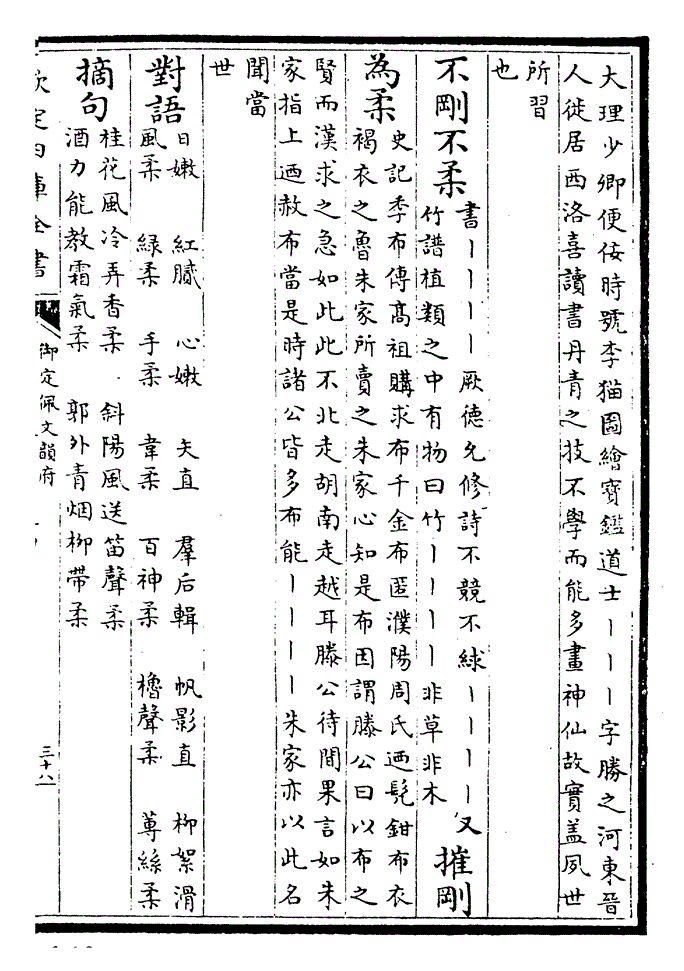 大理少卿便佞時號李猫圖繪寶鑑道士丨丨丨字勝之河東晉
人徙居西洛喜讀書丹青之技不學而能多畫神仙故實盖夙世
所習
也
不剛不柔書丨丨丨丨厥德允修詩不競不絿丨丨丨丨又
竹譜植類之中有物曰竹丨丨丨丨非草非木
摧剛
為柔史記季布傳髙祖購求布千金布匿濮陽周氏迺髡鉗布衣
褐衣之魯朱家所賣之朱家心知是布因謂滕公曰以布之
賢而漢求之急如此此不北走胡南走越耳滕公待間果言如朱
家指上迺赦布當是時諸公皆多布能丨丨丨丨朱家亦以此名
聞當
世
對語日嫩 紅膩 心嫩 矢直 羣后輯 帆影直 柳絮滑
風柔 緑柔 手柔 韋柔 百神柔 櫓聲柔 蓴絲柔
摘句桂花風冷弄香柔 斜陽風送笛聲柔
酒力能教霜氣柔 郭外青烟柳帶柔
欽定四庫全書
御定佩文韻府
三十八